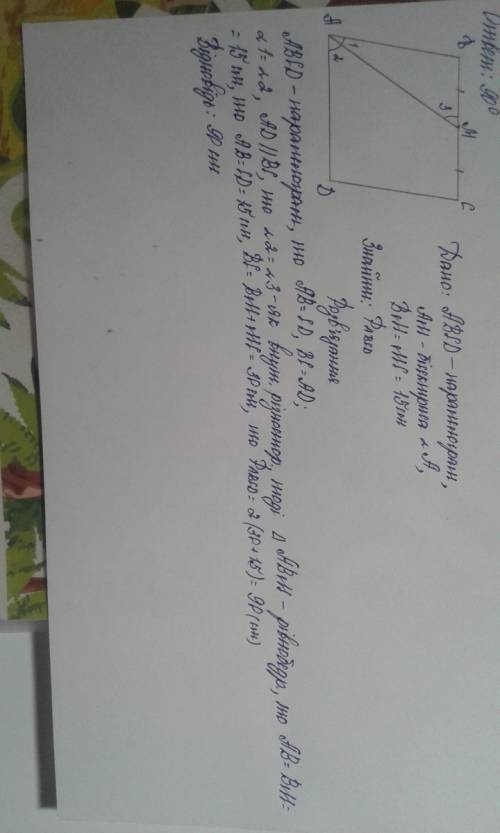 Ответ: 90°
В
М
С
А
D
1
2
3
Дано: ABCD – паралелограм,
АМ – бісектриса ∠А,
ВМ = МС = 15 см
Знайти: P ABCD
Розв'язання
ABCD – паралелограм, то AB = CD, BC = AD;
∠1 = ∠2, AD || BC, то ∠2 = ∠3 – як внутр. різностор., тоді △ ABM – рівнобедр., то AB = BM =
= 15 см, то AB = CD = 15 см, BC = BM + MC = 30 см, то P ABCD = 2(30+15) = 90 (см)
Відповідь: 90 см